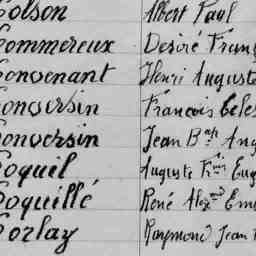 Colson Albert Paul
Commereux Désiré Franç
Convenant Henri Auguste
Conversin François Celes
Conversin Jean Bte Aug
Coquel Auguste Fçois Eug
Coquillé René Alexd Em
Corlay Raymond Jean